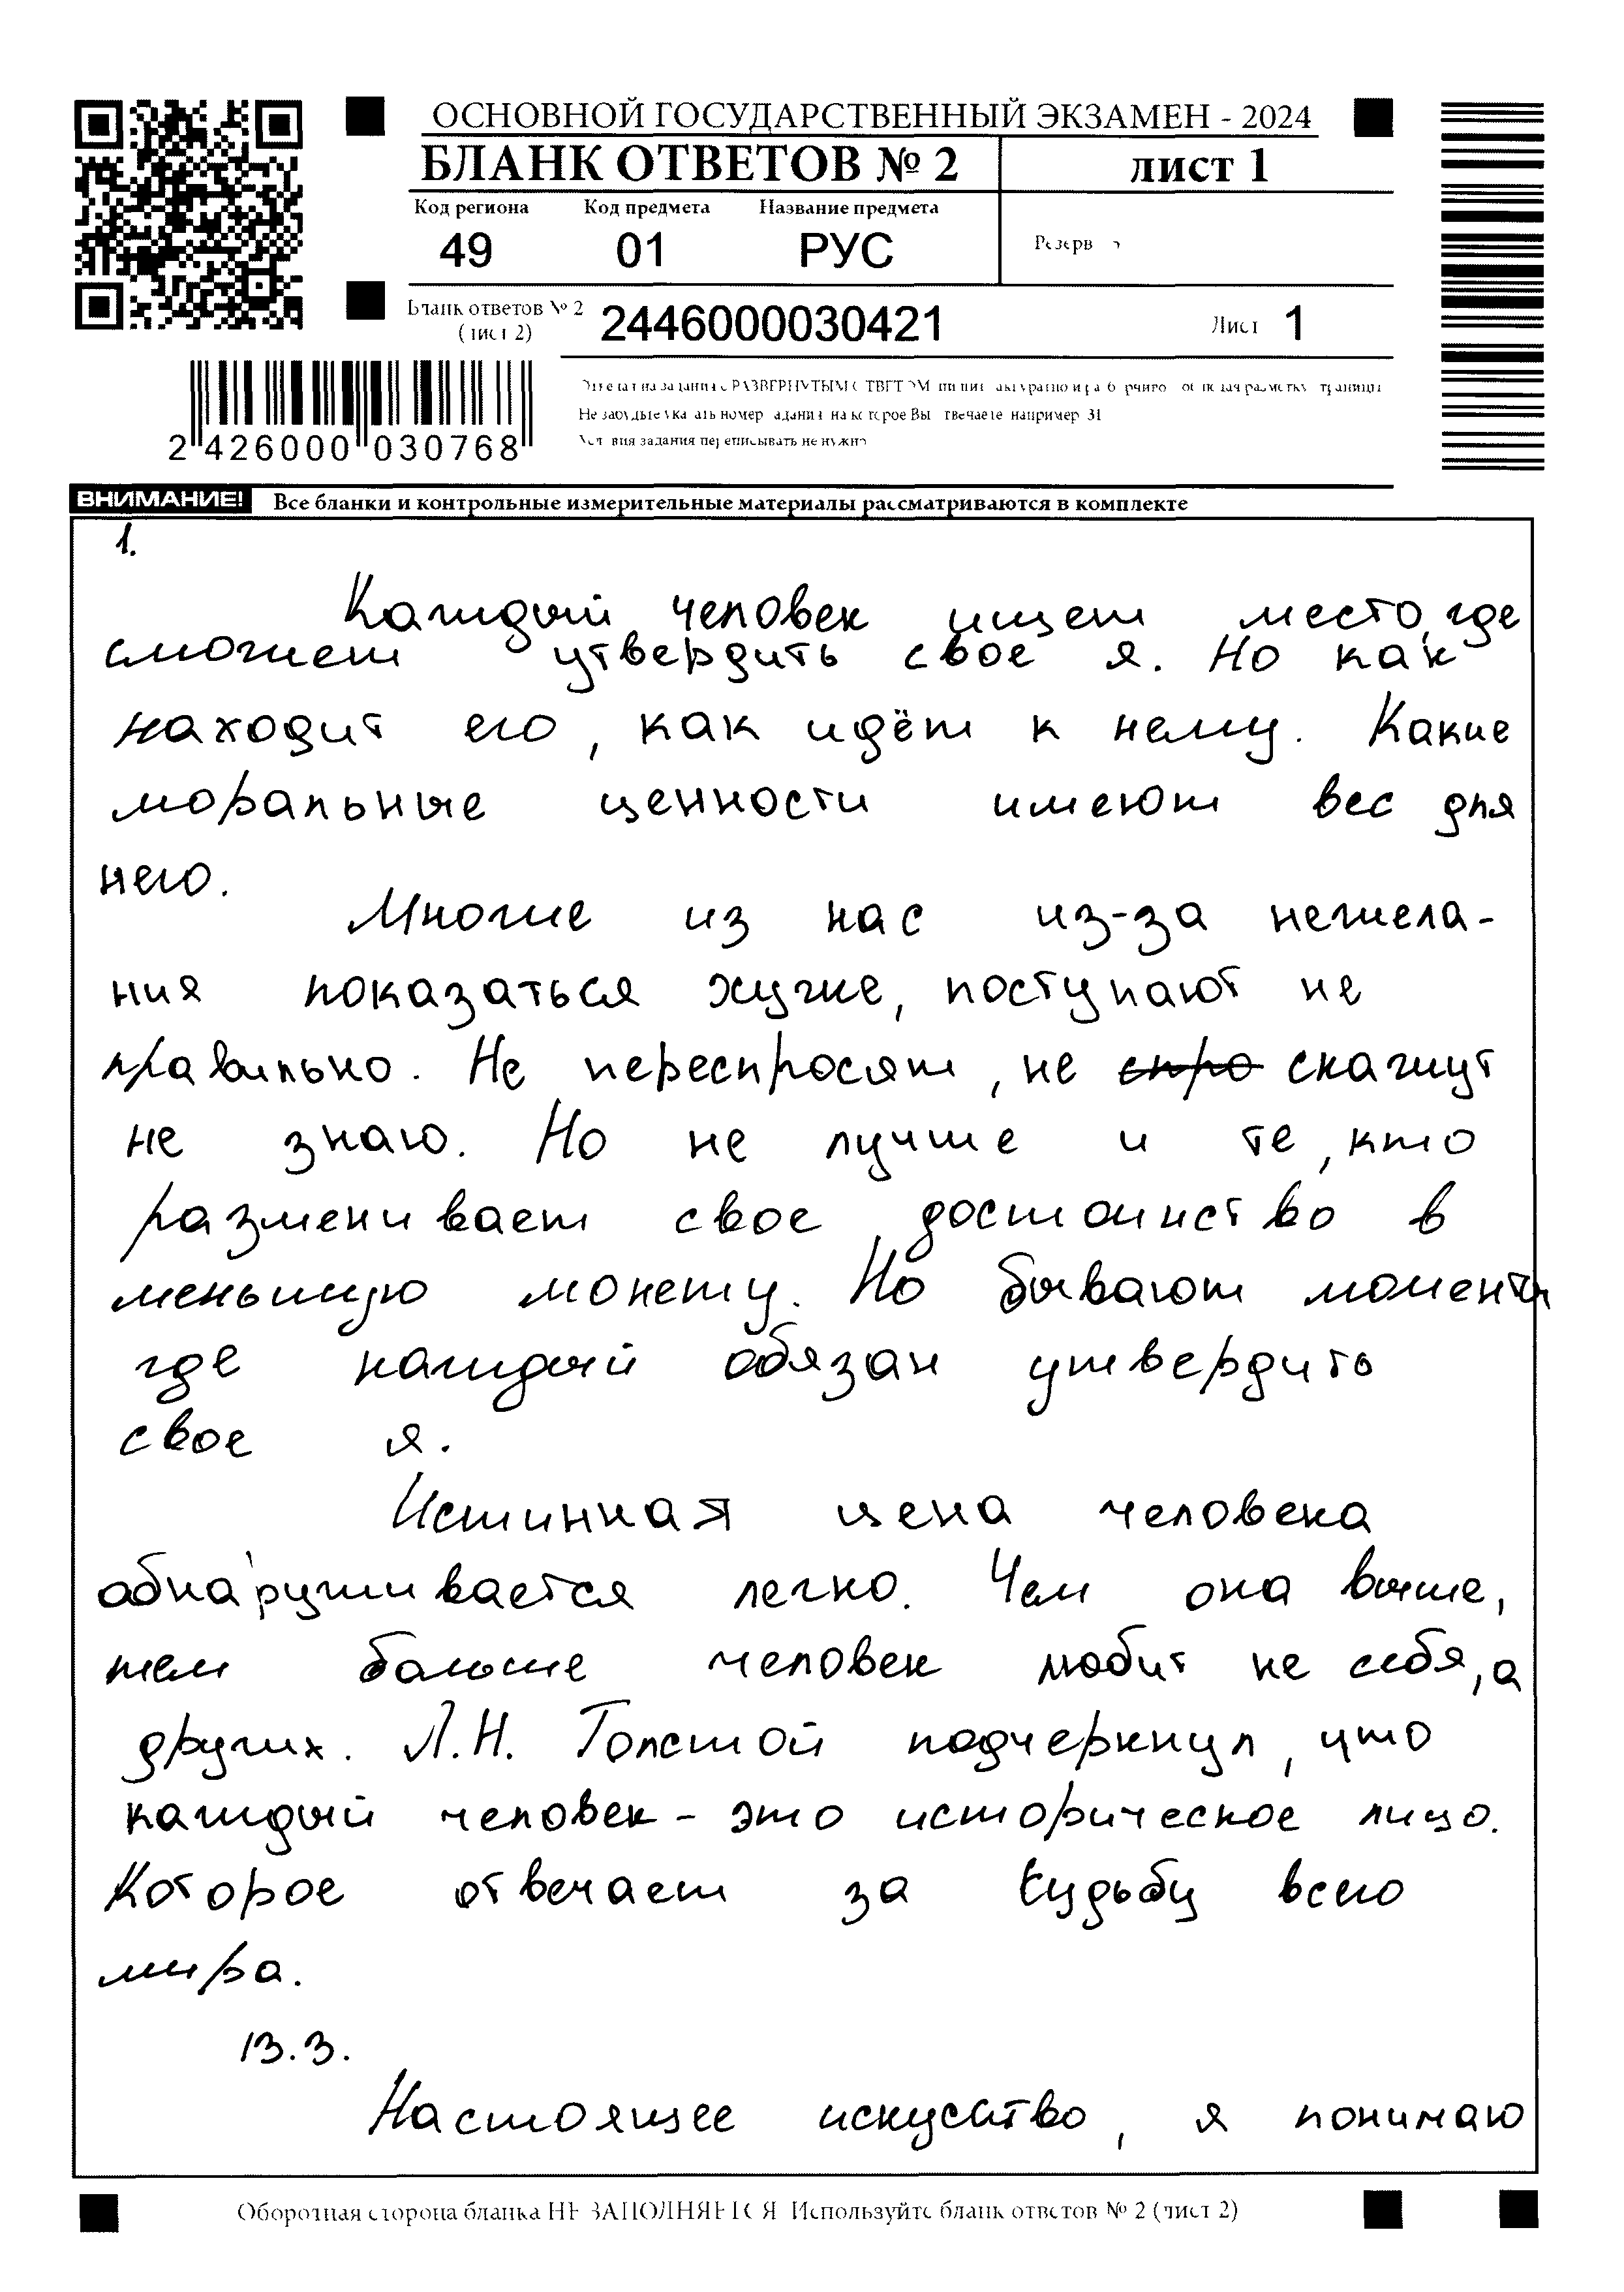 ОСНОВНОЙ ГОСУДАРСТВЕННЫЙ ЭКЗАМЕН - 2024
БЛАНК ОТВЕТОВ № 2 лист 1
Код региона Код предмета Название предмета
49 01 РУС
Резерв
Бланк ответов № 2
(лист 2)
2446000030421 Лист 1
Не забудьте указать номер задания на которое Вы отвечаете например 31
Условия задания переписывать не нужно
2 426000 030768
ВНИМАНИЕ! Все бланки и контрольные измерительные материалы рассматриваются в комплекте
1.
Каждый человек ищет место, где
сможет утвердить свое я. Но как
находит его, как идёт к нему. Какие
моральные ценности имеют вес для
него.
Многие из нас из-за нежела-
ния показаться хуже, поступают не
правильно. Не переспросят, не спро скажут
не знаю. Но не лучше и те, кто
разменивает свое достоинство в
меньшую монету. Но бывают моменты
где каждый обязан утвердить
свое я.
Истинная цена человека
обнаруживается легко. Чем она выше,
тем больше человек любит не себя, а
других. Л.Н. Толстой подчеркнул, что
каждый человек - это историческое лицо.
Которое отвечает за судьбу всего
мира.
13.3.
Настоящее искусство, я понимаю
Оборотная сторона бланка НЕ ЗАПОЛНЯЕТСЯ Используйте бланк ответов № 2 (лист 2)